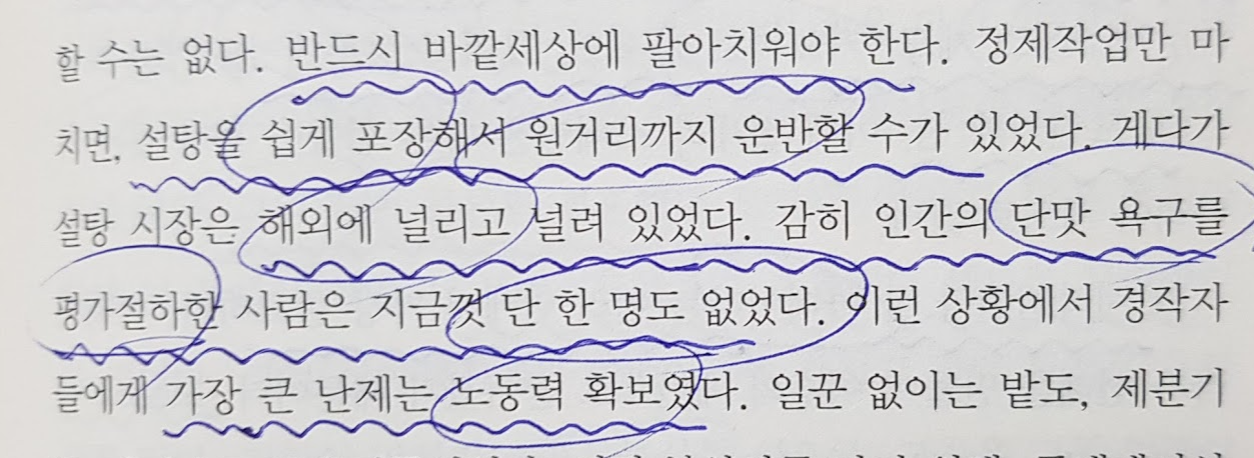 할 수는 없다. 반드시 바깥세상에 팔아치워야 한다. 정제작업만 마
치면, 설탕을 쉽게 포장해서 원거리까지 운반할 수가 있었다. 게다가
설탕 시장은 해외에 널리고 널려 있었다. 감히 인간의 단맛 욕구를
평가절하한 사람은 지금껏 단 한 명도 없었다. 이런 상황에서 경작자
들에게 가장 큰 난제는 노동력 확보였다. 일꾼 없이는 밭도, 제분기